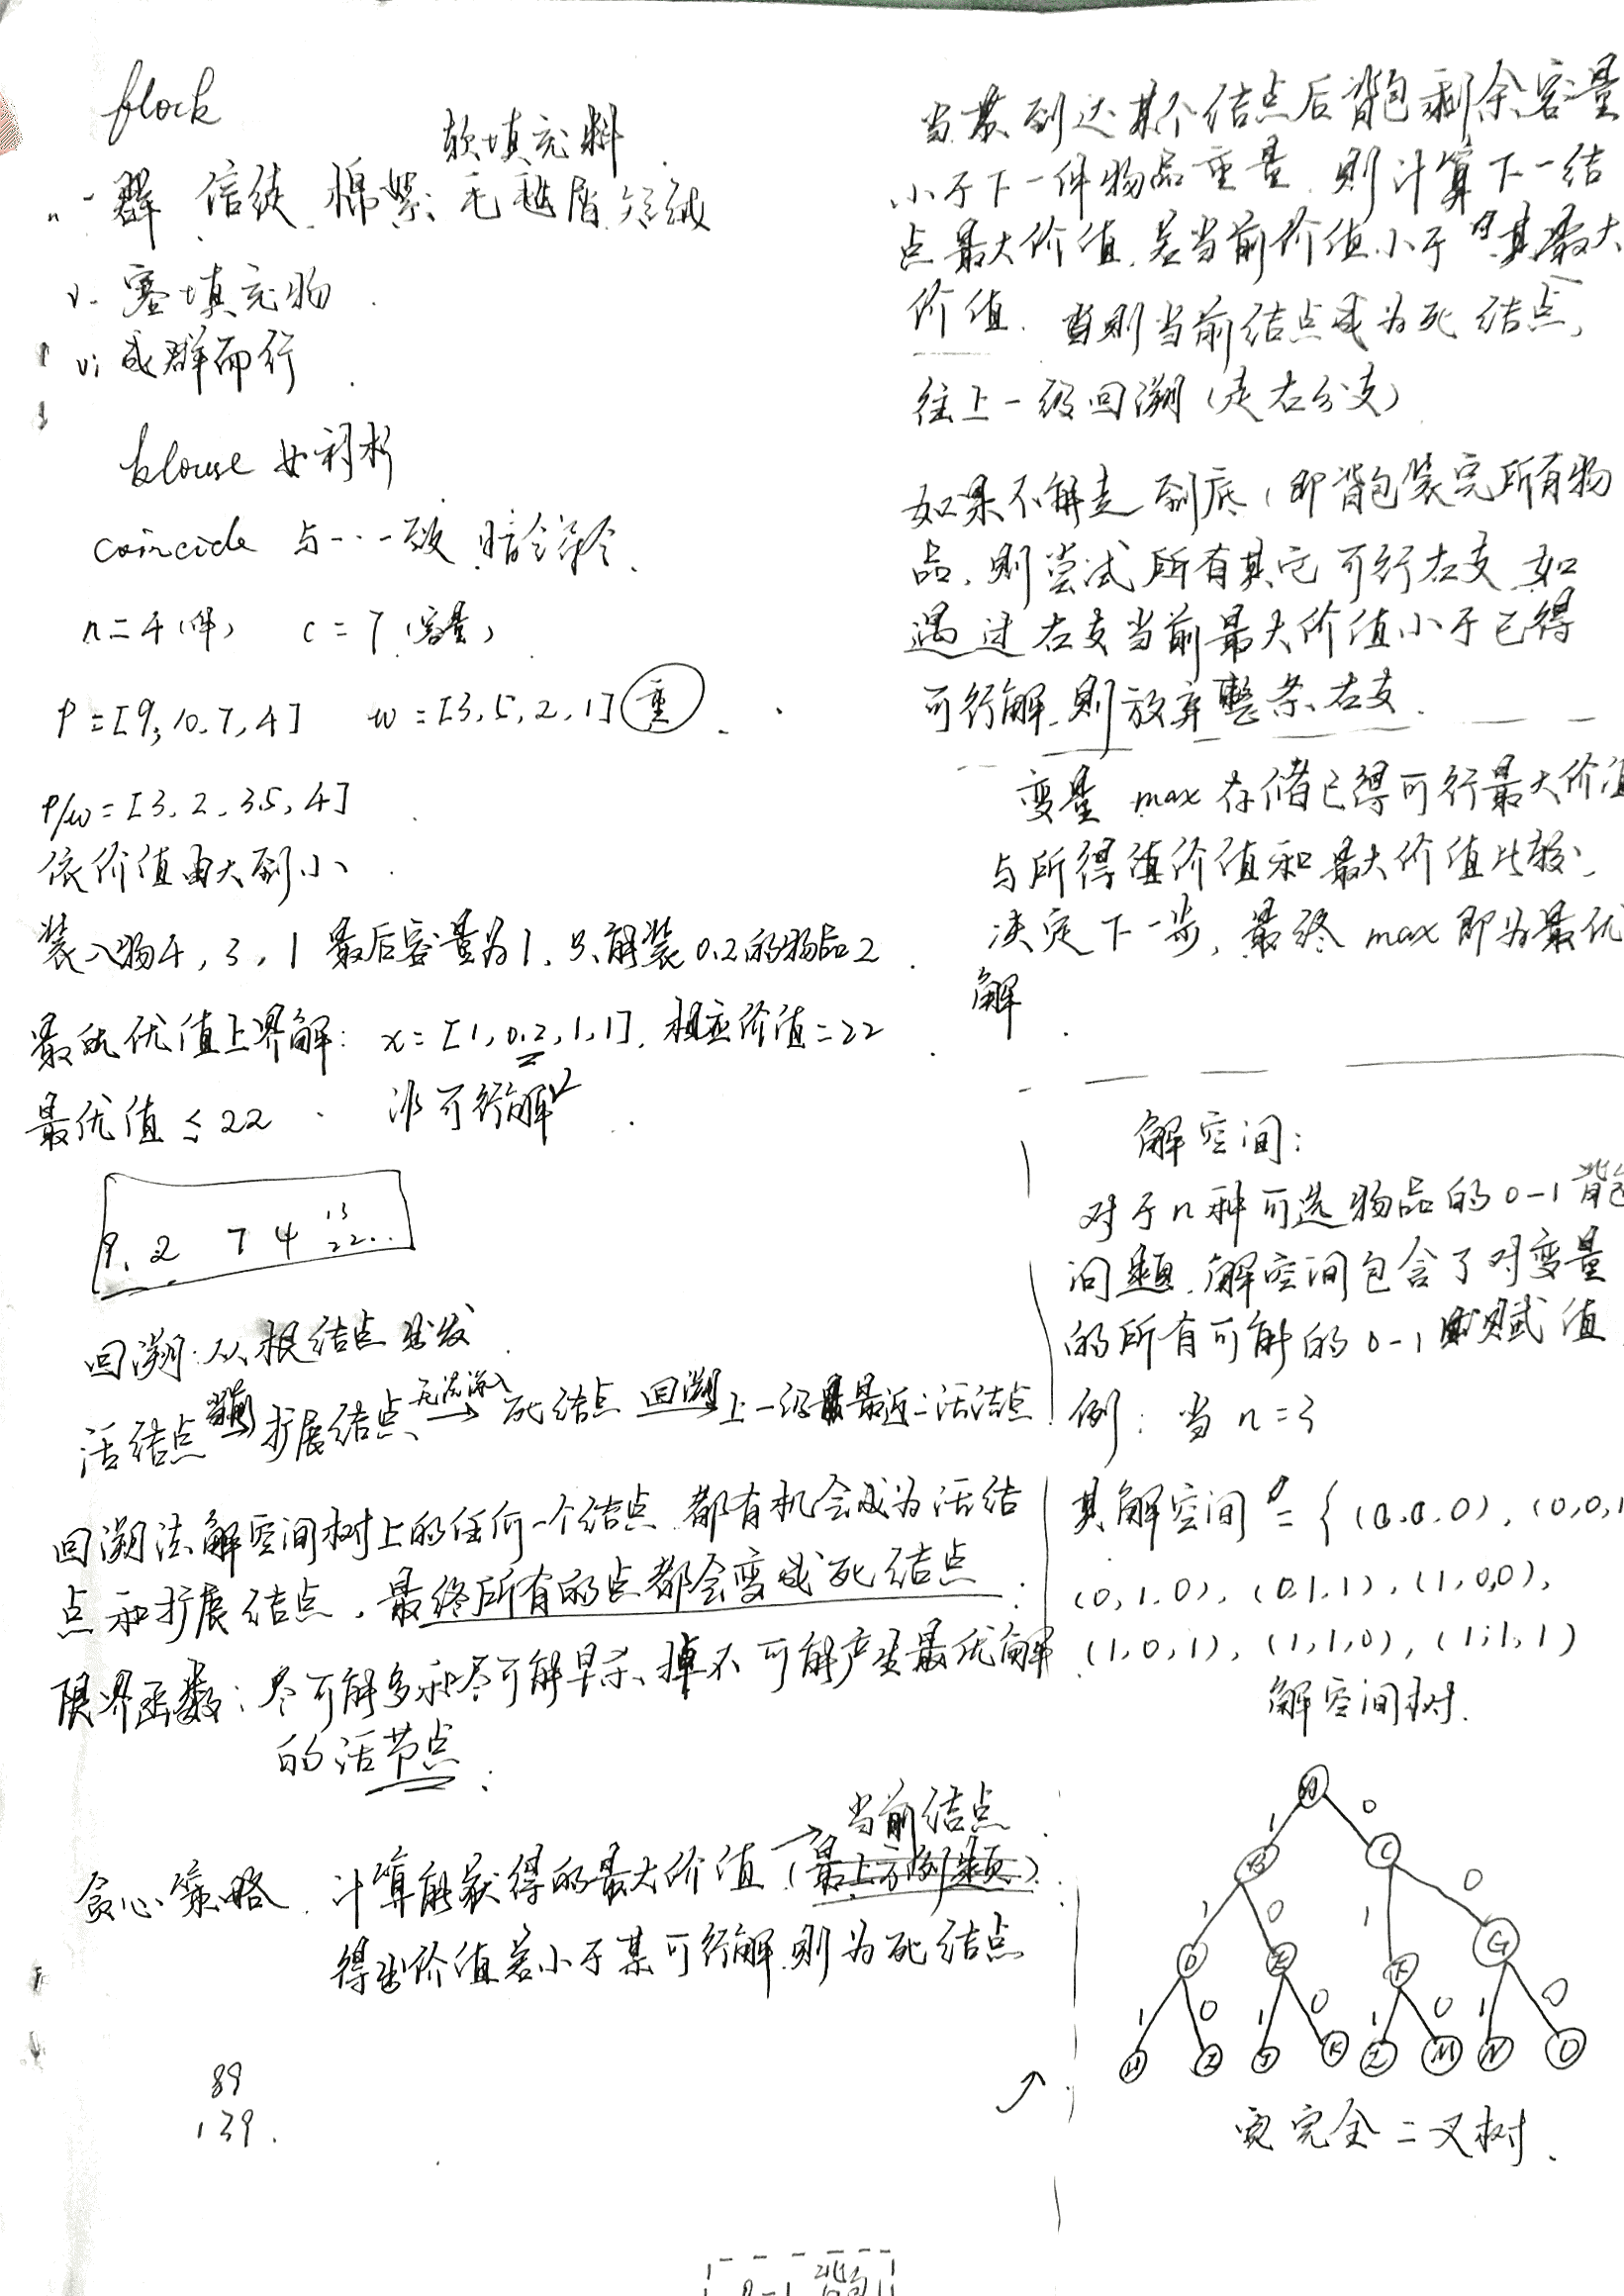 flock
软填充料
n 一群 信徒 棉絮 毛毡屑 短绒
v. 塞填充物
vi 成群而行
blouse 女衬衫
coincide 与···一致 暗合 符合
n=4(件) c=7(容量)
P=[9,10,7,4] w=[3,5,2,1] 重
P/w=[3,2,3.5,4]
依价值由大到小
装入物4,3,1 最后容量为1,只能装0.2的物品2
最优值上界解: x=[1,0.2,1,1],相应价值=22
最优值≤22 非可行解
9. 2 7 4 13
22..
回溯:从根结点出发
活结点 扩展结点 无法深入→ 死结点 回溯 上一级最近一活结点
回溯法解空间树上的任何一个结点都有机会成为活结
点和扩展结点,最终所有的点都会变成死结点.
限界函数:尽可能多和尽可能早杀掉不可能产生最优解
的活节点.
当前结点
贪心策略.计算能获得的最大价值→(最上方例题)
得出价值若小于某可行解,则为死结点
89
139.
当到达某个结点后背包剩余容量
小于下一件物品重量,则计算下一结
点最大价值,若当前价值小于其最大
价值.则当前结点成为死结点,
往上一级回溯(走右分支)
如果不能走到底(即背包装完所有物
品,则尝试所有其它可行右支,如
遇过右支当前最大价值小于已得
可行解,则放弃整条右支.
变量max存储已得可行最大价值
与所得价值和最大价值比较,
决定下一步,最终max即为最优
解.
解空间:
对于n种可选物品的0-1背包
问题,解空间包含了对变量
的所有可能的0-1赋值
例:当n=3
其解空间={(0,0,0),(0,0,1
(0,1,0),(0,1,1),(1,0,0),
(1,0,1),(1,1,0),(1,1,1)
解空间树.
A
1 0
B C
1 0 1 0
D E F G
1 0 1 0 1 0 1 0
H I J K L M N O
完全二叉树.
0-1 背包